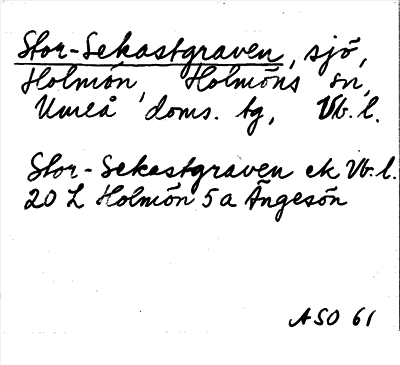 Stor-Sekastgraven, sjö,
Holmön, Holmöns sn,
Umeå doms. tg, Vb.l.
Stor-Sekastgraven ek Vb.l.
20 L Holmön 5a Ängesön
ASO 61